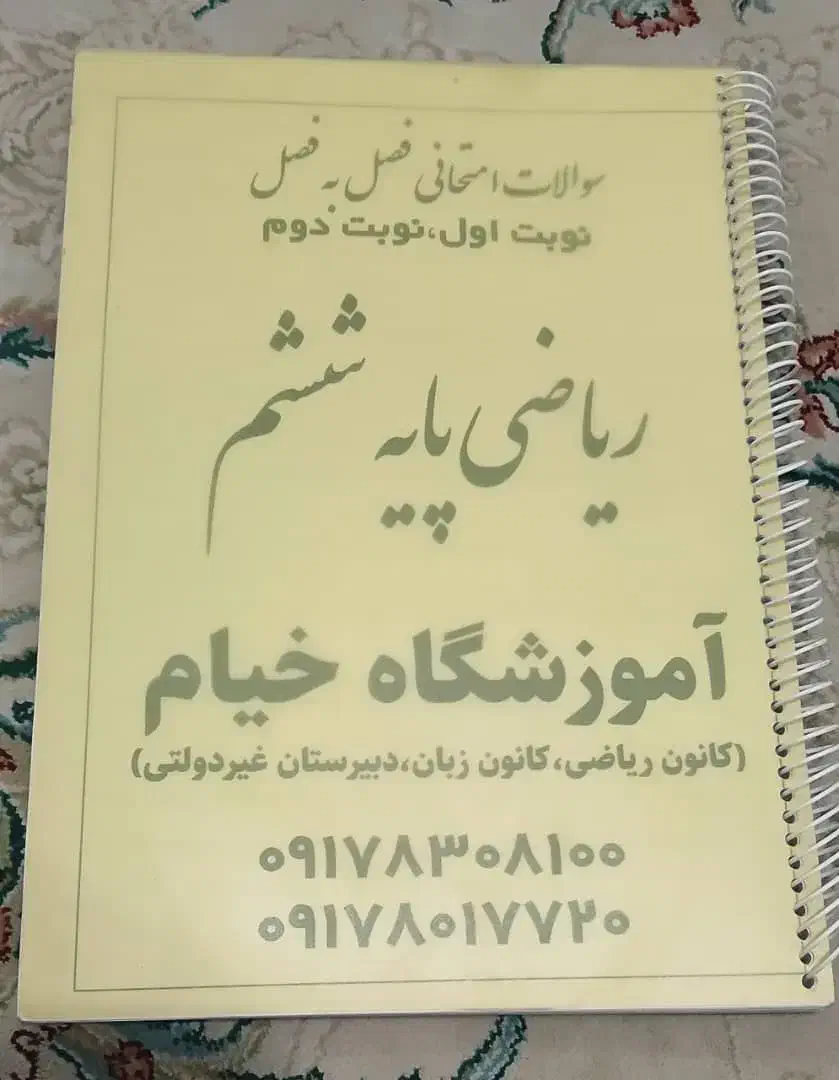 سوالات امتحانی فصل به فصل
نوبت اول،نوبت دوم
ریاضی پایه ششم
آموزشگاه خیام
(کانون ریاضی،کانون زبان،دبیرستان غیردولتی)
۰۹۱۷۸۳۰۸۱۰۰
۰۹۱۷۸۰۱۷۷۲۰